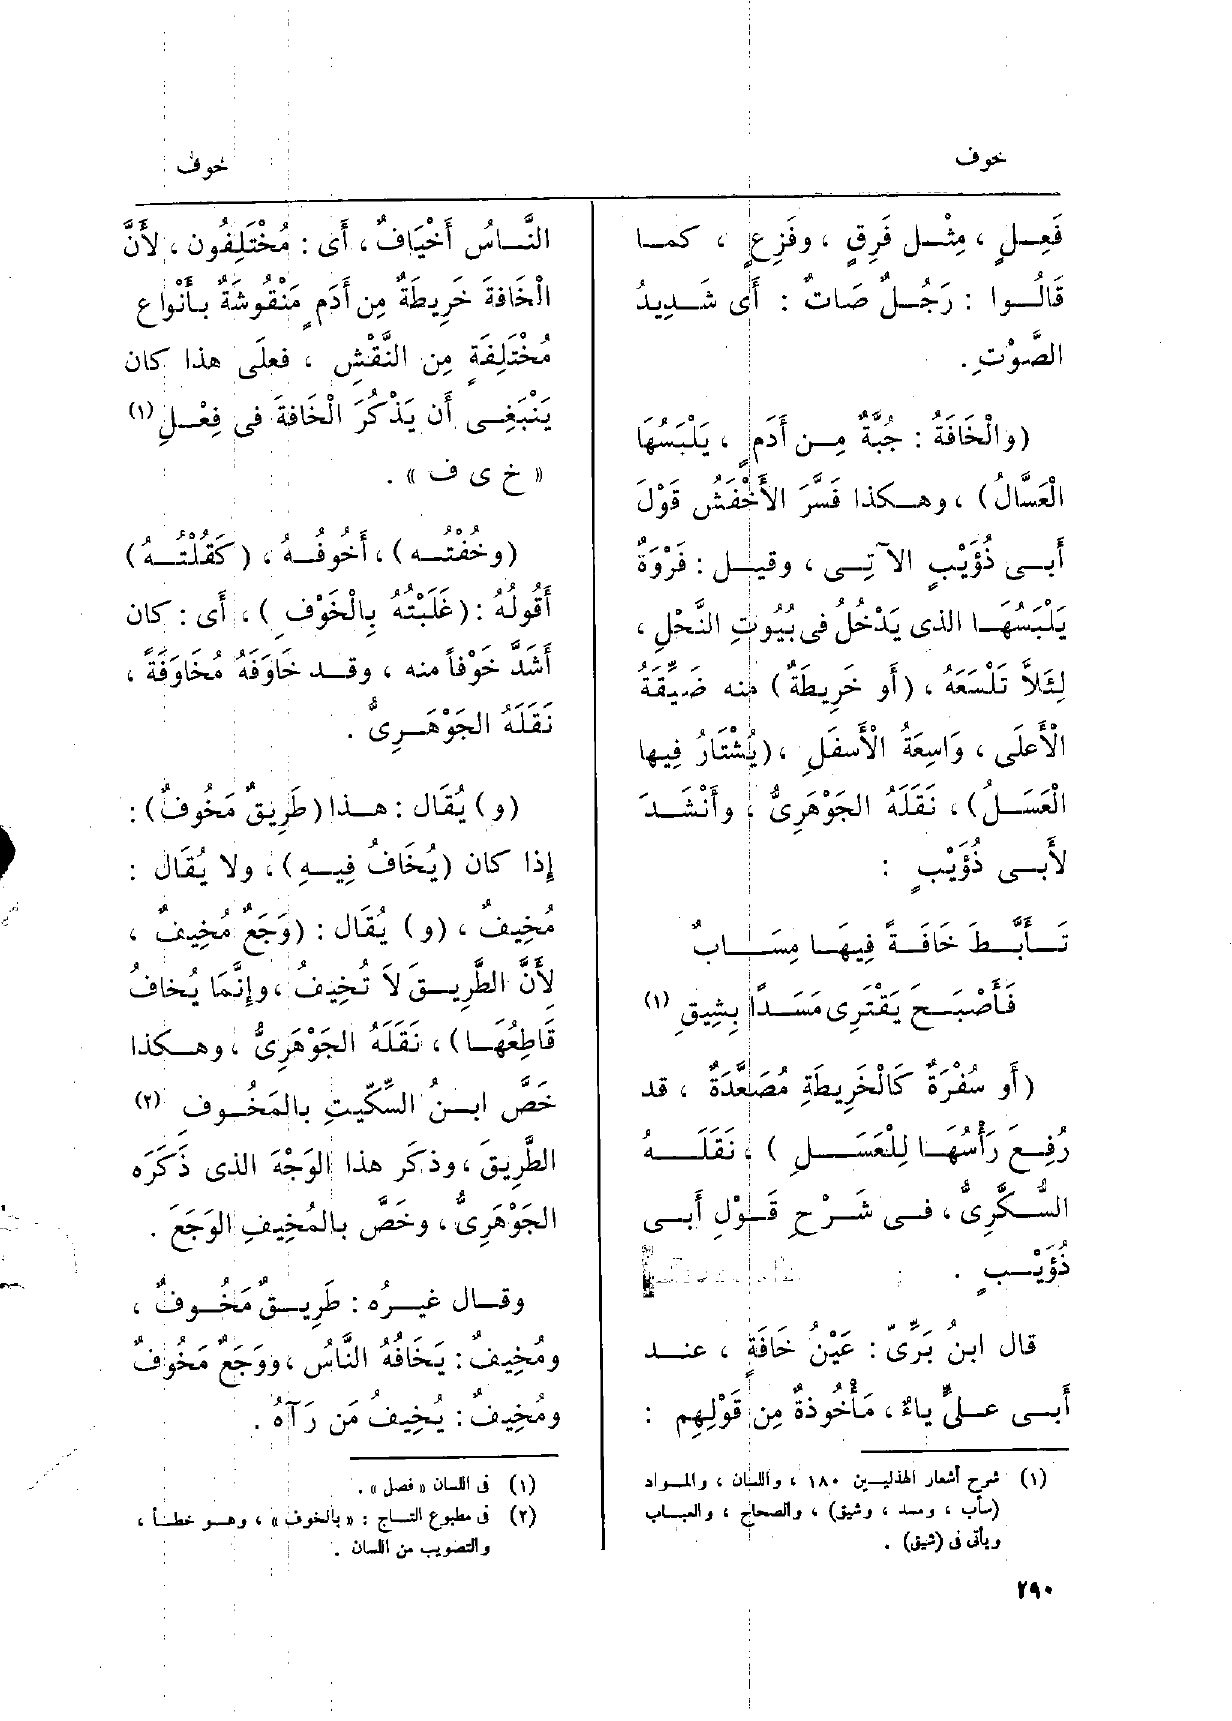 خوف
خوف
فَعِلٍ ، مِثْل فَرِقٍ ، وفَزِعٍ ، كما
قَالُوا : رَجُلٌ صَاتٌ : أَى شَدِيدُ
الصَّوْتِ.
(والْخَافَةُ : جُبَّةٌ مِن أَدَمٍ ، يَلْبَسُهَا
الْعَسَّالُ) ، وهكذا فَسَّرَ الأَخْفَشُ قَوْلَ
أَبى ذُؤَيْبٍ الآتِى ، وقيل : فَرْوَةٌ
يَلْبَسُهَا الذى يَدْخُلُ فى بُيُوتِ النَّحْلِ ،
لِئَلاَّ تَلْسَعَهُ ، (أو خَرِيطَةٌ) منه ضَيِّقَةُ
الْأَعلَى ، وَاسِعَةُ الْأَسفَلِ ، (يُشْتَارُ فِيها
الْعَسَلُ) ، نَقَلَهُ الجَوْهَرِىُّ ، وأَنْشَدَ
لأَبى ذُؤَيْبٍ :
تَأَبَّطَ خَافَةً فِيهَا مِسَابٌ
فَأَصْبَحَ يَقْتَرِى مَسَدًا بِشِيقِ (١)
(أو سُفْرَةٌ كَالْخَرِيطَةِ مُصَعَّدَةٌ ، قد
رُفِعَ رَأْسُهَا لِلْعَسَلِ ) ، نَقَلَهُ
السُّكَّرِىُّ ، فى شَرْحِ قَوْلِ أَبى
ذُؤَيْبٍ .
قال ابنُ بَرِّىّ : عَيْنُ خَافَةٍ ، عند
أَبى علىٍّ ياءٌ ، مَأْخُوذةٌ مِن قَوْلِهِم :
(١) شرح أشعار الهذليين ١٨٠ ، واللسان ، والمواد
(سأب ، ومسد ، وشيق) ، والصحاح ، والعباب
ويأتى فى (شيق) .
٢٩٠
النَّاسُ أَخْيَافٌ ، أَى : مُخْتَلِفُون ، لأَنَّ
الْخَافَةَ خَرِيطَةٌ مِن أَدَمٍ مَنْقُوشَةٌ بأَنْواع
مُخْتَلِفَةٍ مِن النَّقْشِ ، فعلَى هذا كان
يَنْبَغِى أَن يَذْكُرَ الْخَافَةَ فى فِعْلِ (١)
« خ ى ف » .
(وخُفْتُه) ، أَخُوفُهُ ، (كَقُلْتُهُ)
أَقُولُهُ : (غَلَبْتُهُ بِالْخَوْفِ ) ، أَى : كان
أَشَدَّ خَوْفاً منه ، وقد خَاوَفَهُ مُخَاوَفَةً ،
نَقَلَهُ الجَوْهَرِىُّ .
(و) يُقَال : هذا (طَرِيقٌ مَخُوفٌ) :
إِذا كان (يُخَافُ فِيهِ) ، ولا يُقَال :
مُخِيفٌ ، (و) يُقَال : (وَجَعٌ مُخِيفٌ ،
لِأَنَّ الطَّرِيقَ لاَ تُخِيفُ ، وإِنَّمَا يُخافُ
قَاطِعُهَا) ، نَقَلَهُ الجَوْهَرِىُّ ، وهكذا
خَصَّ ابنُ السِّكِّيتِ بالمَخُوفِ (٢)
الطَّرِيقَ ، وذكَر هذا الوَجْهَ الذى ذَكَرَه
الجَوْهَرِىُّ ، وخَصَّ بالمُخِيفِ الوَجَعَ .
وقال غيرُه : طَرِيقٌ مَخُوفٌ ،
ومُخِيفٌ : يَخَافُهُ النَّاسُ ، ووَجَعٌ مَخُوفٌ
ومُخِيفٌ : يُخِيفُ مَن رَآهُ .
(١) فى اللسان « فصل » .
(٢) فى مطبوع التاج : « بالخوف » ، وهو خطأ ،
والتصويب من اللسان .